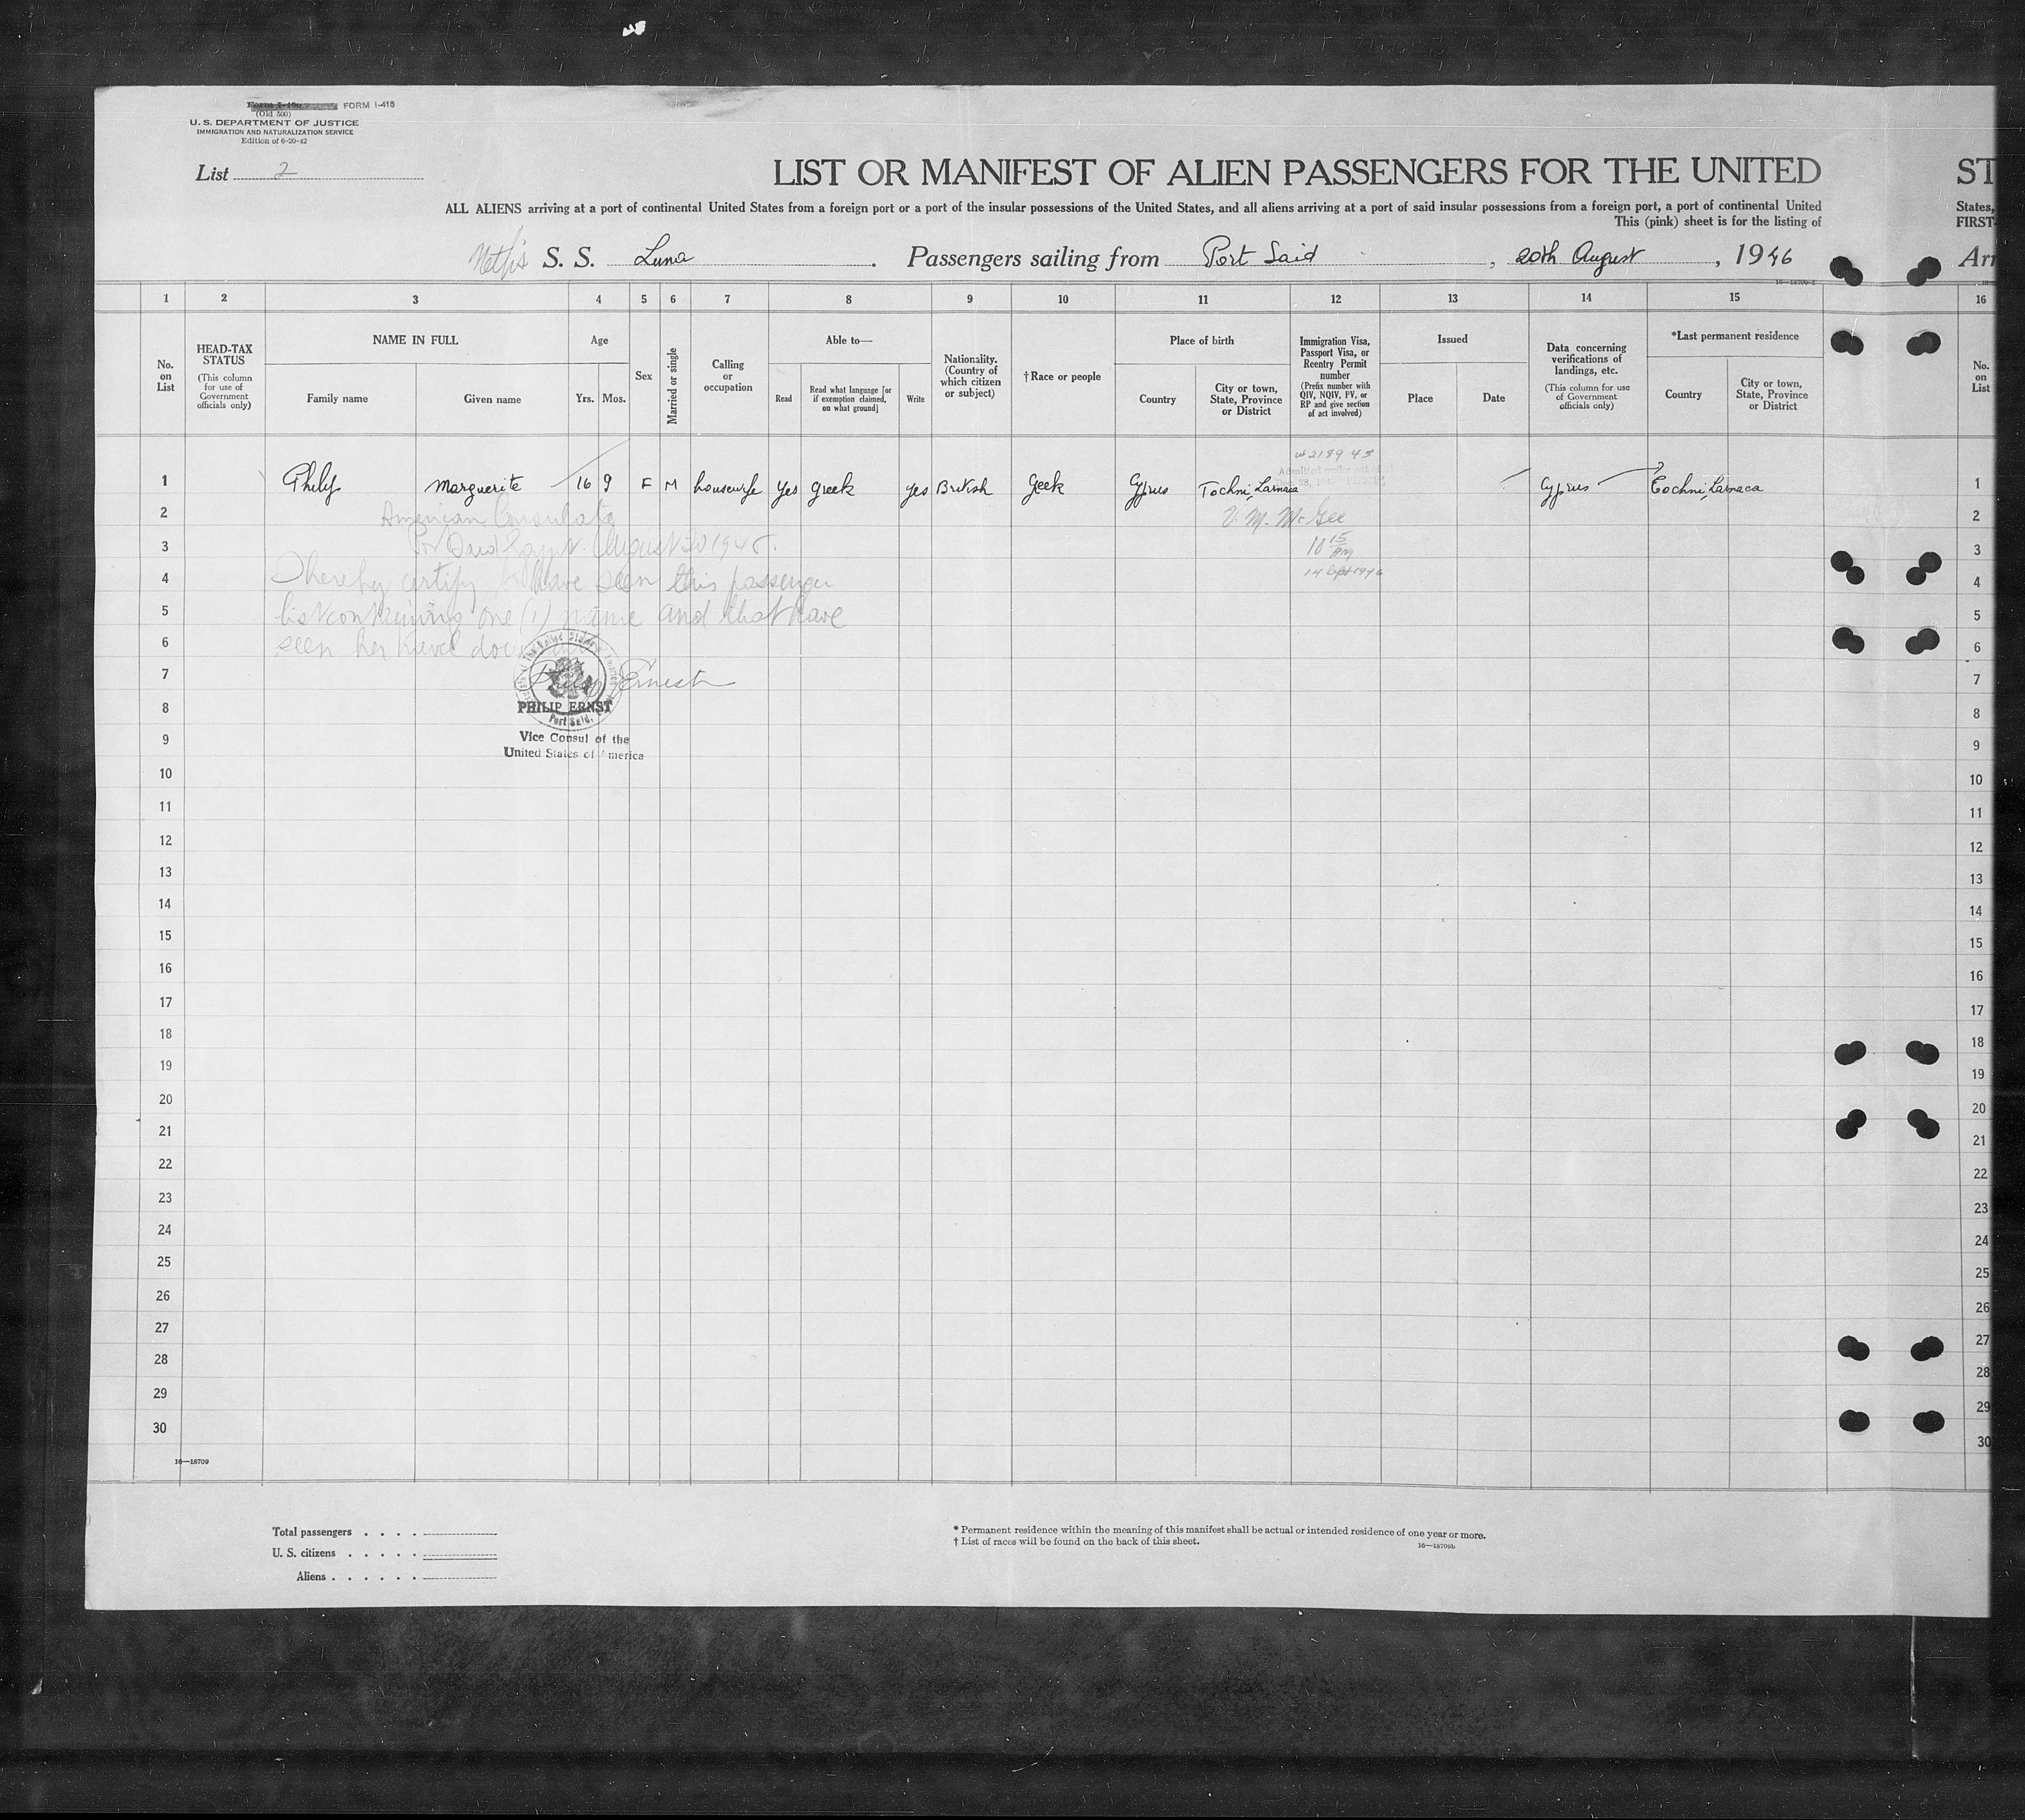 FORM I-415
(Old 500)
U. S. DEPARTMENT OF JUSTICE
IMMIGRATION AND NATURALIZATION SERVICE
Edition of 6-20-42
List 2
LIST OR MANIFEST OF ALIEN PASSENGERS FOR THE UNITED ST
ALL ALIENS arriving at a port of continental United States from a foreign port or a port of the insular possessions of the United States, and all aliens arriving at a port of said insular possessions from a foreign port, a port of continental United States,
This (pink) sheet is for the listing of FIRST-
S. S. Luna . Passengers sailing from Port Said , 20th August , 1946 Arr
1 2 3 4 5 6 7 8 9 10 11 12 13 14 15 16
No. on List
HEAD-TAX STATUS
(This column for use of Government officials only)
NAME IN FULL
Family name Given name
Age
Yrs. Mos.
Sex
Married or single
Calling or occupation
Able to—
Read
Read what language [or if exemption claimed, on what ground]
Write
Nationality. (Country of which citizen or subject)
†Race or people
Place of birth
Country
City or town, State, Province or District
Immigration Visa, Passport Visa, or Reentry Permit number
(Prefix number with QIV, NQIV, PV, or RP and give section of act involved)
Issued
Place Date
Data concerning verifications of landings, etc.
(This column for use of Government officials only)
*Last permanent residence
Country
City or town, State, Province or District
No. on List
1 Philip Marguerite 16 9 F M housewife Yes greek yes British greek Cyprus Tochni, Larnaca Cyprus Tochni, Larnaca 1
2 American Consulate V. M. McGee 2
3 August 20 1946. 10 15 AM 3
4 I hereby certify have seen this passenger 14 Sept 1946 4
5 list containing one (1) name and that have 5
6 seen her travel 6
7 Philip Ernst 7
8 PHILIP ERNST 8
Port Said,
9 Vice Consul of the 9
United States of America
10 10
11 11
12 12
13 13
14 14
15 15
16 16
17 17
18 18
19 19
20 20
21 21
22 22
23 23
24 24
25 25
26 26
27 27
28 28
29 29
30 30
16—18709
Total passengers . . . .
U. S. citizens . . . . .
Aliens . . . . . .
* Permanent residence within the meaning of this manifest shall be actual or intended residence of one year or more.
† List of races will be found on the back of this sheet.
16—18709b